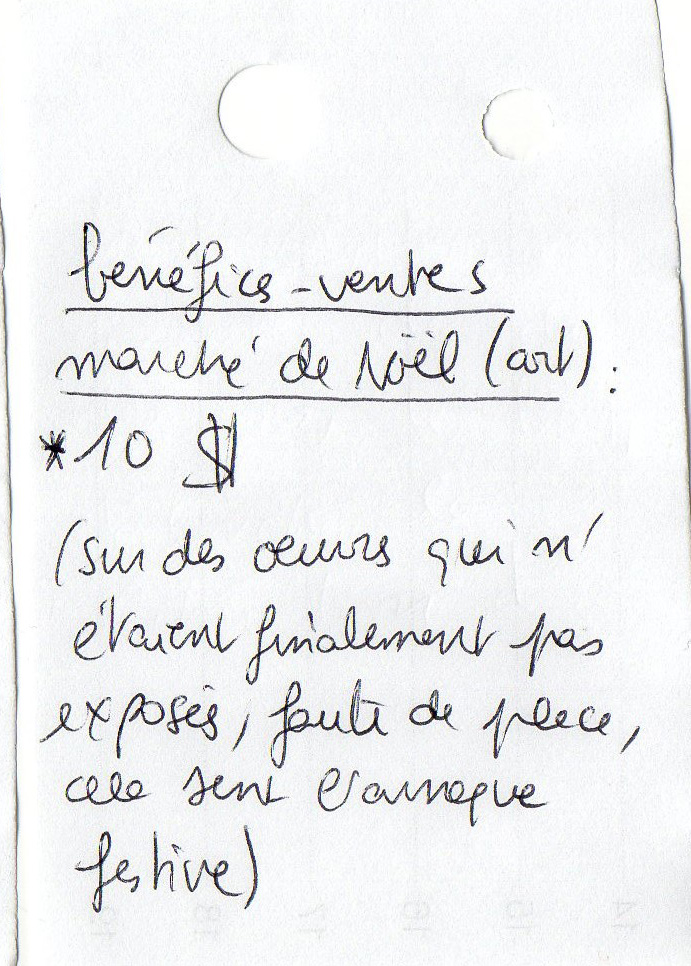 bénéfices-ventes
marché de Noël (art) :
*10 $
(sur des œuvres qui n'
étaient finalement pas
exposés, faute de place,
cela sent l'arnaque
festive)